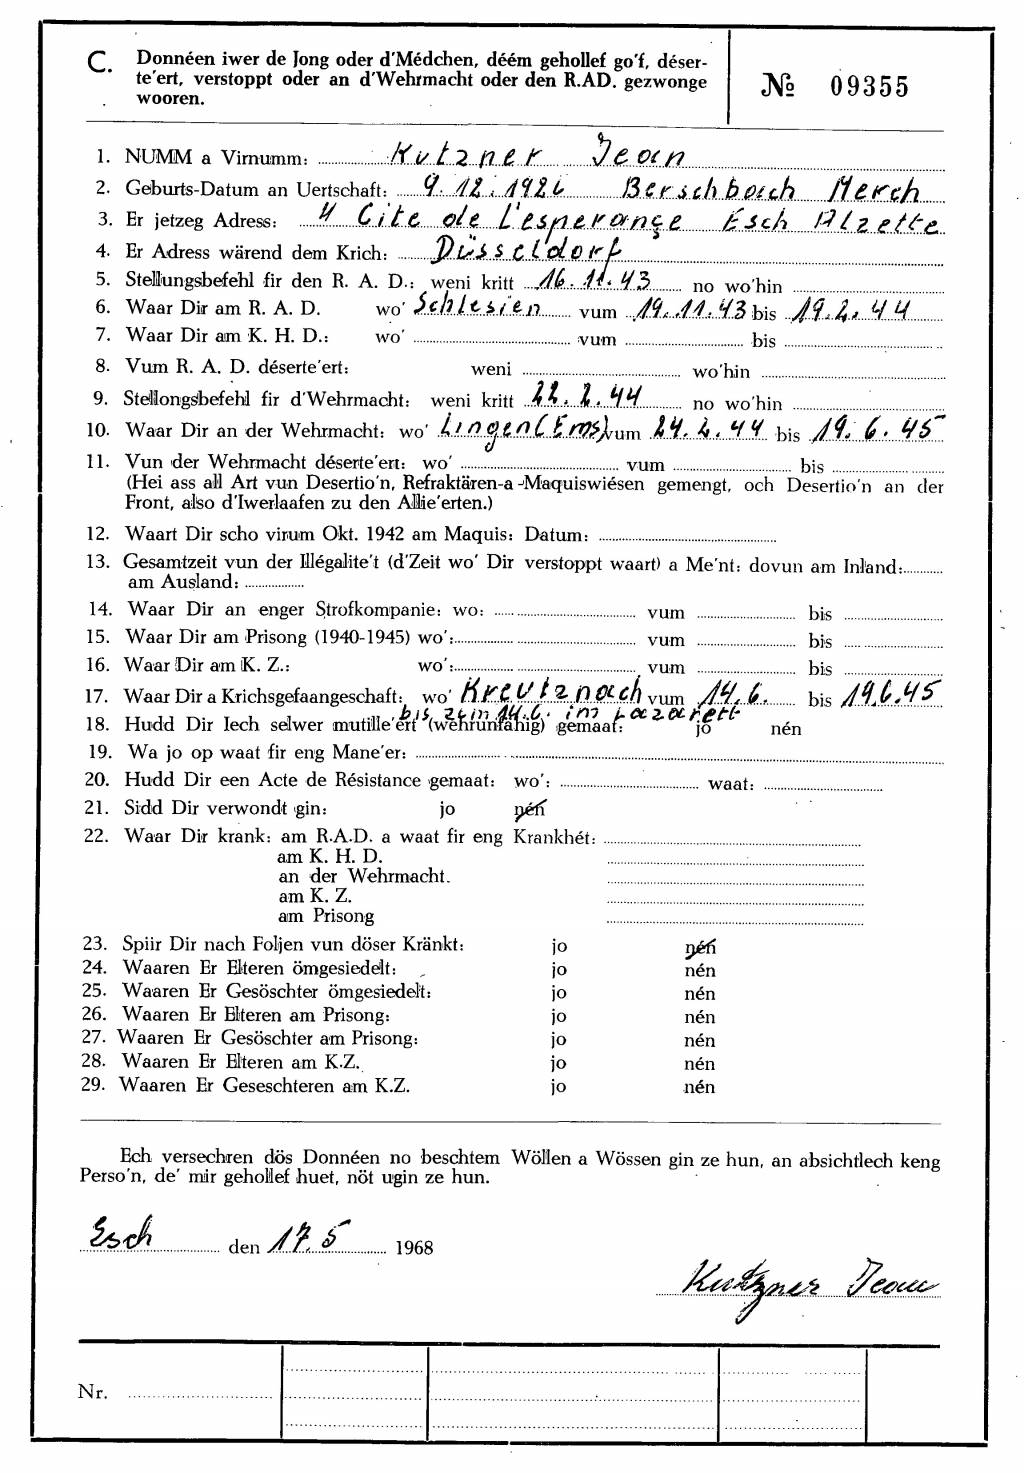 C. Donnéen iwer de Jong oder d'Médchen, déém gehollef go'f, déser-
te'ert, verstoppt oder an d'Wehrmacht oder den R.AD. gezwonge
wooren.
№ 09355
1. NUMM a Virnumm: Kutzner Jean
2. Geburts-Datum an Uertschaft: 9.12.1926 Berschbach Merch
3. Er jetzeg Adress: 4 Cite de L'esperançe Esch Alzette
4. Er Adress wärend dem Krich: Düsseldorf
5. Stellungsbefehl fir den R. A. D.: weni kritt 16.11.43 no wo'hin
6. Waar Dir am R. A. D. wo' Schlesien vum 19.11.43 bis 19.2.44
7. Waar Dir am K. H. D.: wo' vum bis
8. Vum R. A. D. déserte'ert: weni wo'hin
9. Stellongsbefehl fir d'Wehrmacht: weni kritt 22.2.44 no wo'hin
10. Waar Dir an der Wehrmacht: wo' Lingen (Ems) vum 24.2.44 bis 19.6.45
11. Vun der Wehrmacht déserte'ert: wo' vum bis
(Hei ass all Art vun Desertio'n, Refraktären-a -Maquiswiésen gemengt, och Desertio'n an der
Front, also d'Iwerlaafen zu den Allie'erten.)
12. Waart Dir scho virum Okt. 1942 am Maquis: Datum:
13. Gesamtzeit vun der Illégalite't (d'Zeit wo' Dir verstoppt waart) a Me'nt: dovun am Inland:
am Ausland:
14. Waar Dir an enger Strofkompanie: wo: vum bis
15. Waar Dir am Prisong (1940-1945) wo': vum bis
16. Waar Dir am K. Z.: wo': vum bis
17. Waar Dir a Krichsgefaangeschaft: wo' Kreutznach vum 14.6. bis 19.6.45
bis zum 14.6. im Lazarett
18. Hudd Dir Iech selwer mutille'ert (wehrunfähig) gemaat: jo nén
19. Wa jo op waat fir eng Mane'er:
20. Hudd Dir een Acte de Résistance gemaat: wo': waat:
21. Sidd Dir verwondt gin: jo nén
22. Waar Dir krank: am R.A.D. a waat fir eng Krankhét:
am K. H. D.
an der Wehrmacht.
am K. Z.
am Prisong
23. Spiir Dir nach Foljen vun döser Kränkt: jo nén
24. Waaren Er Elteren ömgesiedelt: jo nén
25. Waaren Er Gesöschter ömgesiedelt: jo nén
26. Waaren Er Elteren am Prisong: jo nén
27. Waaren Er Gesöschter am Prisong: jo nén
28. Waaren Er Elteren am K.Z. jo nén
29. Waaren Er Geseschteren am K.Z. jo nén
Ech versechren dös Donnéen no beschtem Wöllen a Wössen gin ze hun, an absichtlech keng
Perso'n, de' mir gehollef huet, nöt ugin ze hun.
Esch den 17.5 1968
Kutzner Jean
Nr.